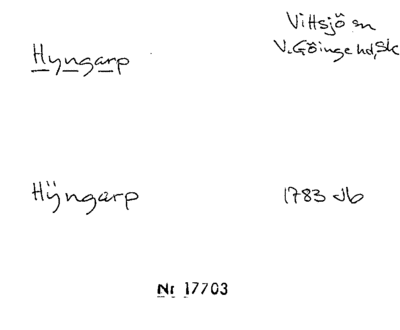 Hyngarp
Vittsjö sn
V. Göinge hd, Sk
Hÿngarp
1783 Jb
Nr 17703